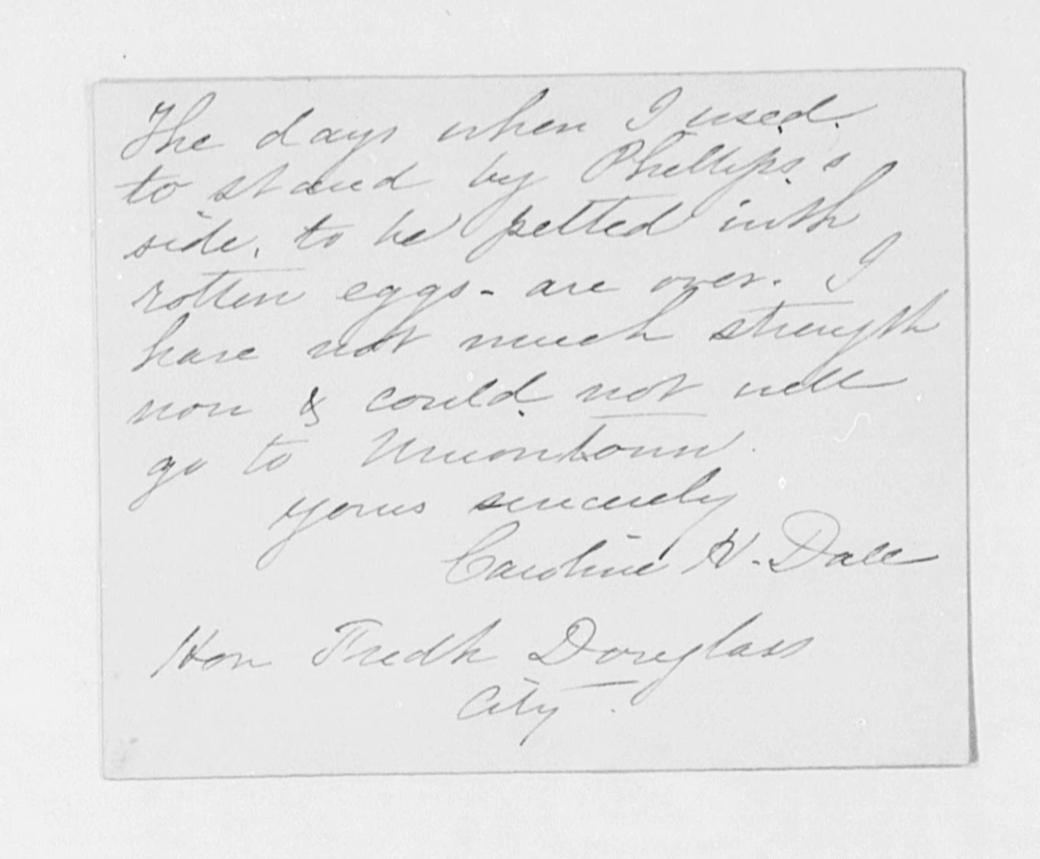 The days when I used
to stand by Phillips's
side, to be pelted with
rotten eggs - are over. I
have not much strength
now & could not well
go to Uniontown.
yours sincerely
Caroline H. Dall
Hon Fredk Douglass
City.